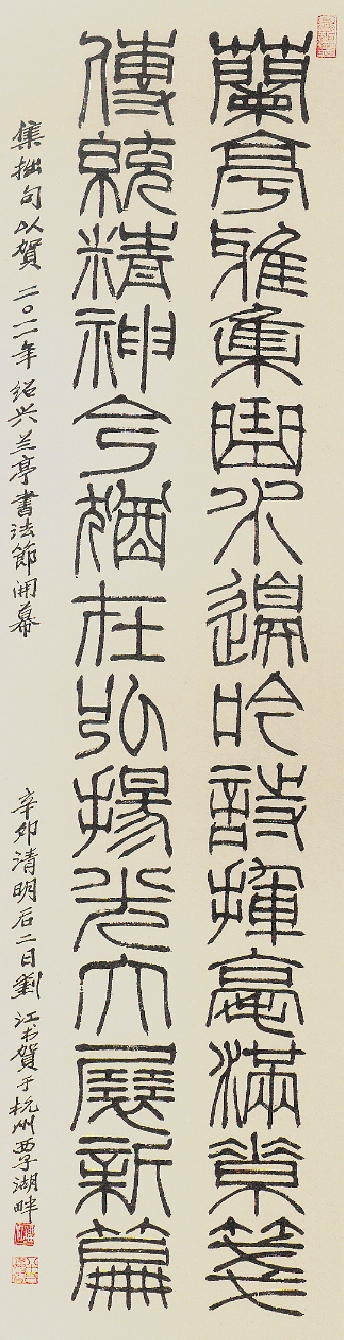 蘭亭雅集曲水邊吟詩揮毫滿箋
傳統精神今猶在弘揚光大展新篇
集拙句以賀二〇一一年绍兴兰亭書法節開幕
辛卯清明后二日劉江书賀于杭州西子湖畔